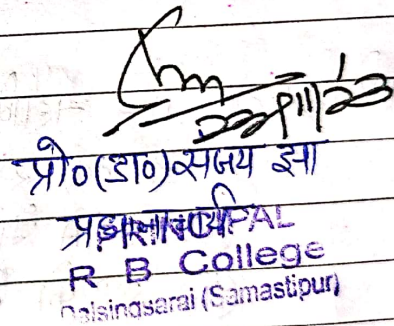 प्रो०(डा०) संजय झा
प्रधानाचार्य
PRINCIPAL
R B College
Dalsingsarai (Samastipur)